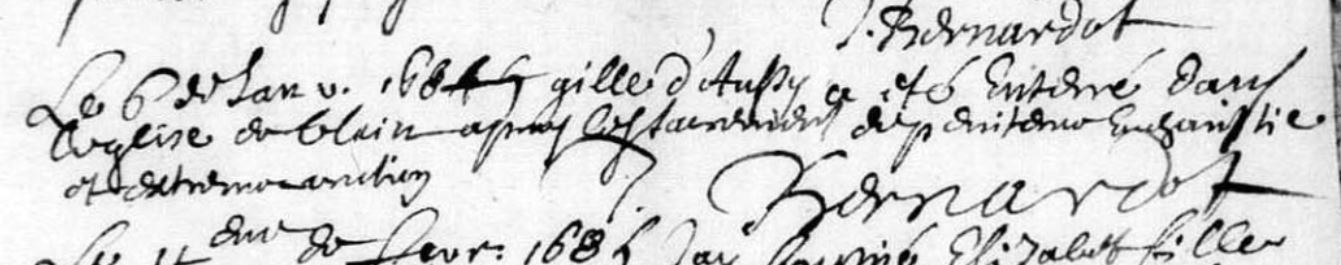 J. Bernardot
Le 6 de Janv. 1685 gille d'Aussy a eté enterré dans
l'eglise de blain apres les sacremens de penitence Eucharistie
et extreme onction
Bernardot
Le 11 eme de fevr. 1685 Jay Elizabet fille